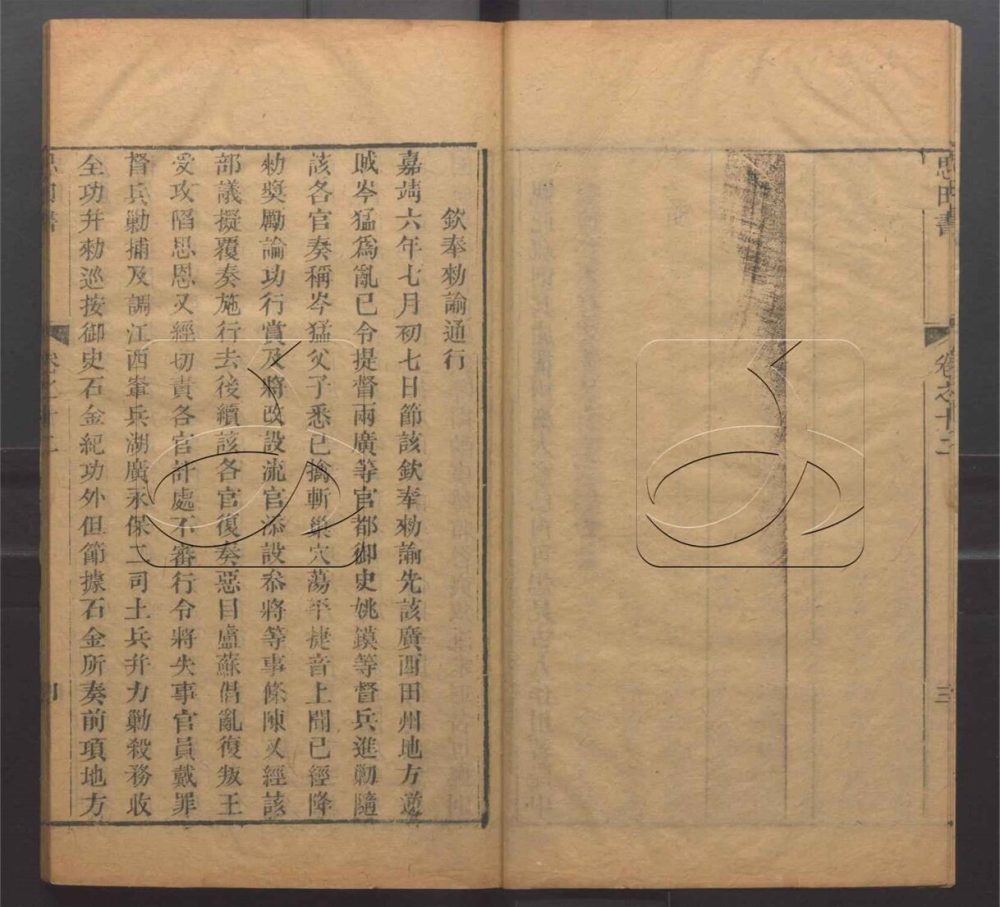 思田書
卷之十二
三
欽奉勑諭通行
嘉靖六年七月初七日節該欽奉勑諭先該廣西田州地方逆
賊岑猛爲亂已令提督兩廣等官都御史姚鏌等督兵進勦隨
該各官奏稱岑猛父子悉已擒斬巢穴蕩平捷音上聞已經降
勑獎勵論功行賞及將改設流官添設叅將等事條陳又經該
部議擬覆奏施行去後續該各官復奏惡目盧蘇倡亂復叛王
受攻陷思恩又經切責各官計處不審行令將失事官員戴罪
督兵勦捕及調江西軍兵湖廣永保二司土兵幷力勦殺務收
全功幷勑巡按御史石金紀功外但節據石金所奏前項地方
卷之十二